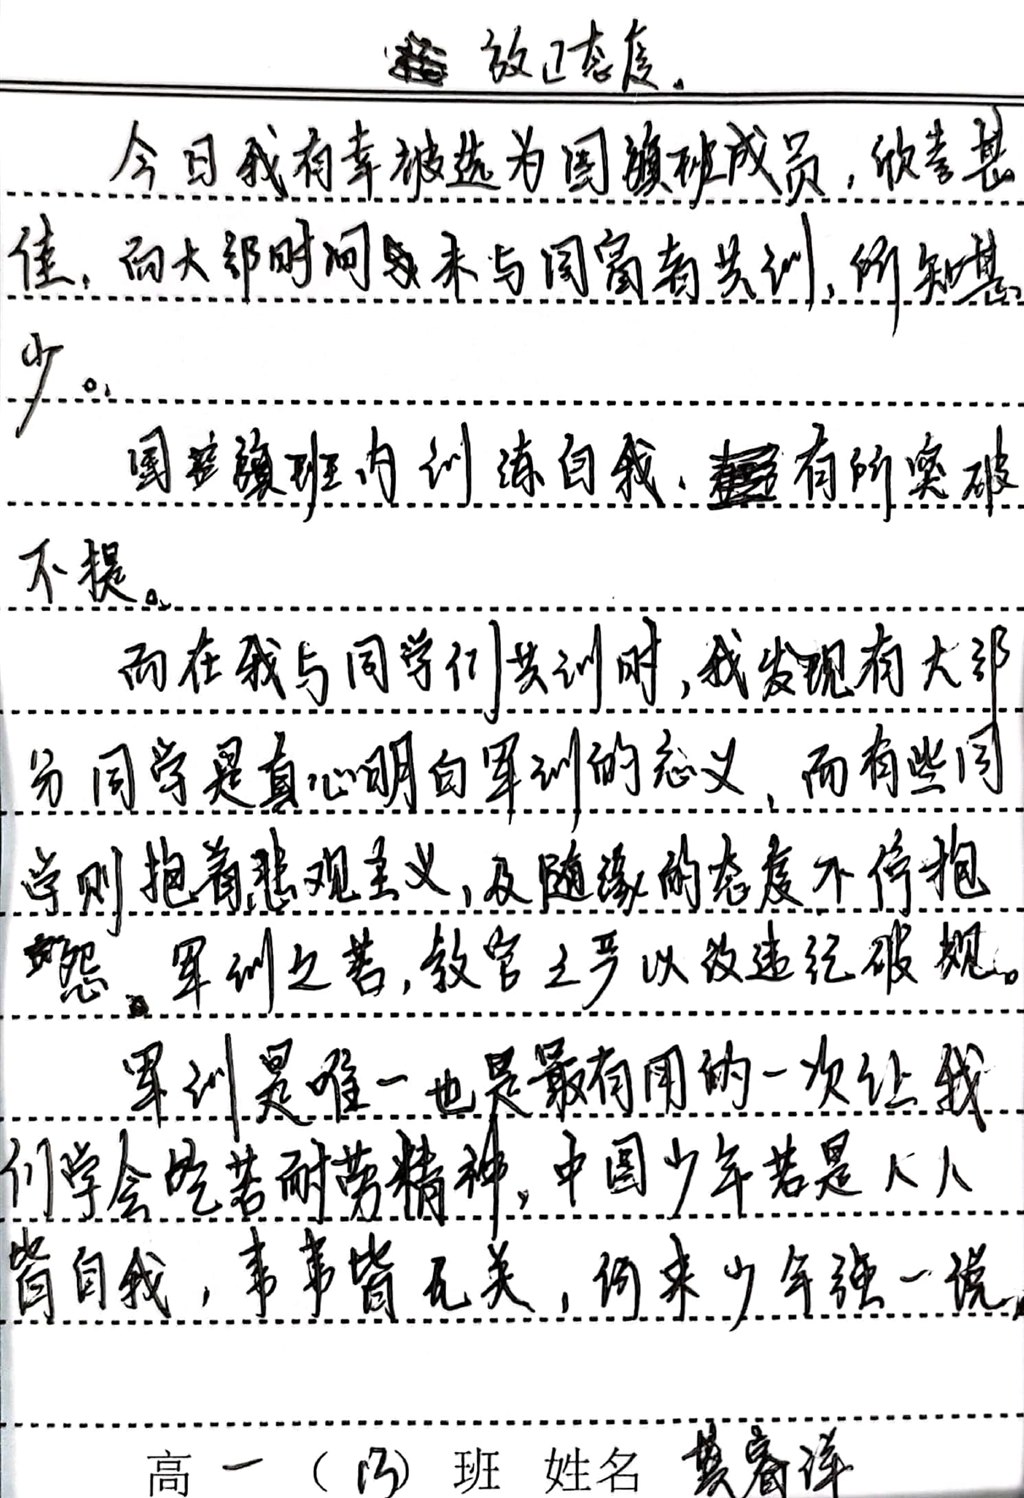 放正态度。
今日我有幸被选为国旗班成员，欣喜甚
佳，而大部时间未与同窗者共训，所知甚
少。
国旗班内训练自我，有所突破
不提。
而在我与同学们共训时，我发现有大部
分同学是真心明白军训的意义，而有些同
学则抱着悲观主义，及随缘的态度不停抱
怨。军训之苦，教官之严以致违纪破规。
军训是唯一也是最有用的一次让我
们学会吃苦耐劳精神，中国少年若是人人
皆自我，事事皆无关，何来少年强一说
高一（13）班 姓名 睿洋